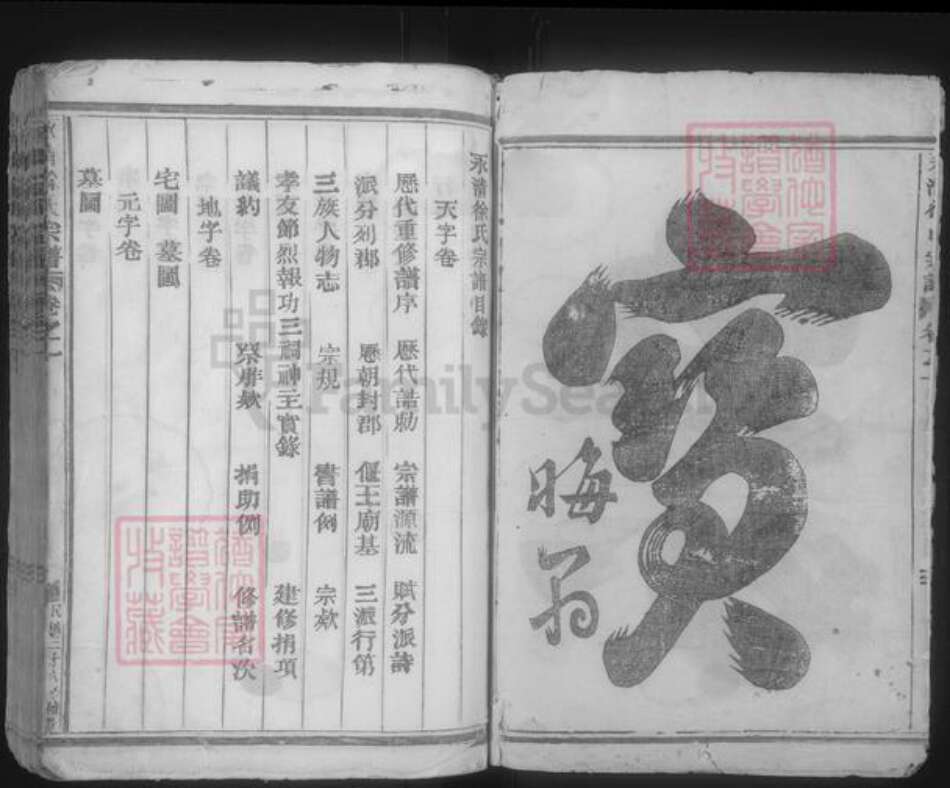 寶
晦翁
永清徐氏宗譜目錄
天字卷
歷代重修譜序 歷代誥勅 宗譜源流 賦分派詩
派分列郡 歷朝封郡 偃王廟基 三派行第
三族人物志 宗規 書譜例 宗欵
孝友節烈報功三祠神主實錄 建修捐項
議約 祭胙欵 捐助例 修譜名次
地字卷
宅圖 墓圖
元字卷
墓圖
FamilySearch